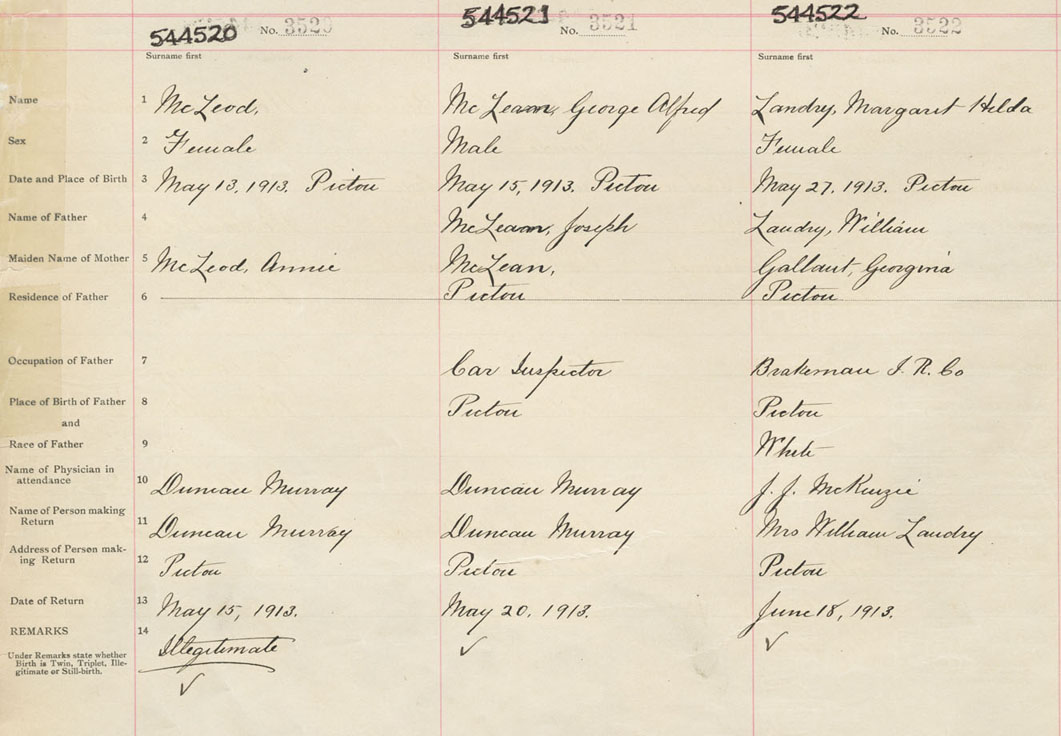 544520 No. 3520 544521 No. 3521 544522 No. 3522
Surname first Surname first Surname first
Name 1 McLeod, McLean, George Alfred Landry, Margaret Hilda
Sex 2 Female Male Female
Date and Place of Birth 3 May 13, 1913. Pictou May 15, 1913. Pictou May 27, 1913. Pictou
Name of Father 4 McLean, Joseph Landry, William
Maiden Name of Mother 5 McLeod, Annie McLean, Gallant, Georgina
Residence of Father 6 Pictou Pictou
Occupation of Father 7 Car Inspector Brakeman I. R. Co
Place of Birth of Father 8 Pictou Pictou
and
Race of Father 9 White
Name of Physician in
attendance 10 Duncan Murray Duncan Murray J. J. McKenzie
Name of Person making
Return 11 Duncan Murray Duncan Murray Mrs William Landry
Address of Person mak-
ing Return 12 Pictou Pictou Pictou
Date of Return 13 May 15, 1913. May 20, 1913. June 18, 1913.
REMARKS 14 Illegitimate
Under Remarks state whether
Birth is Twin, Triplet, Ille-
gitimate or Still-birth.